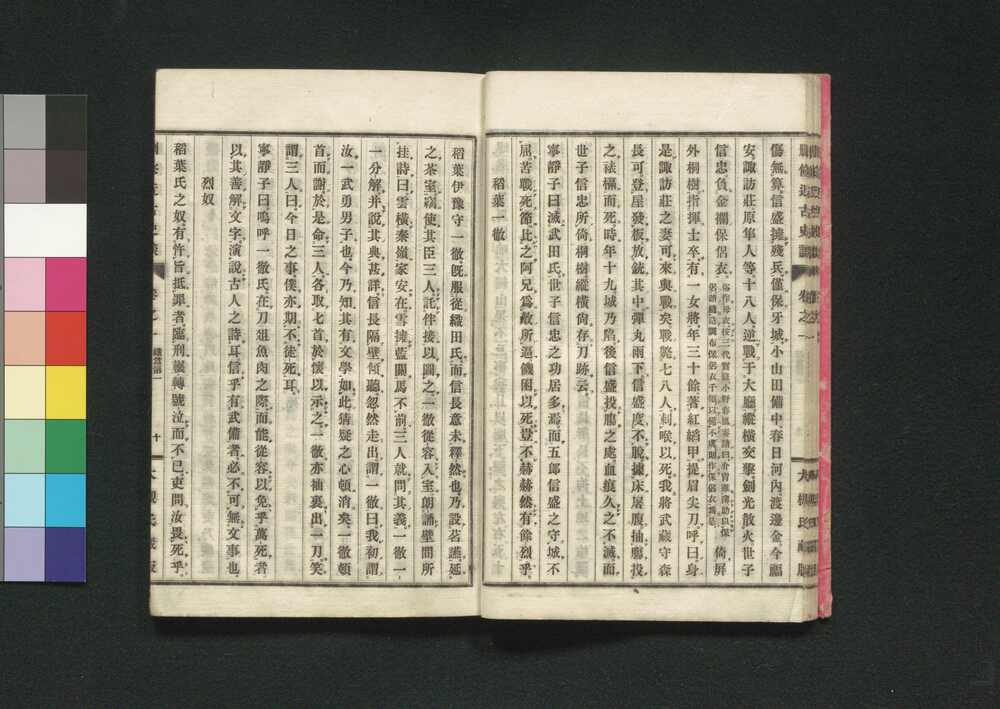 傷無算信盛擁殘兵僅保牙城小山田備中春日河內渡邊金今福
安諏訪莊原隼人等十八人逆戰于大廳縱橫交擊劍光散火世子
信忠負金襴保侶衣
倚屏
外桐樹指揮士卒有一女將年三十餘著紅縚甲提眉尖刀呼曰身
是諏訪莊之妻可來與戰矣戰斃七八人刺喉以死我將武藏守森
長可登屋發板放銃其中彈丸雨下信盛度不脫據床屠腹抽膓投
之禠攝而死時年十九城乃陷後信盛投膓之處血痕久之不滅而
世子信忠所倚桐樹縱橫尙存刀跡云
寧靜子曰滅武田氏世子信忠之功居多焉而五郞信盛之守城不
屈苦戰死節比之阿兄爲敵所逼饑困以死豈不赫赫然有餘烈乎
稻葉一徹
稻葉伊豫守一徹旣服從織田氏而信長意未釋然也乃設茗讌延
之茶室窮使其臣三人託伴接以圖之一徹從容入室朗誦壁間所
挂詩曰雲橫秦嶺家安在雪擁藍關馬不前三人就問其義一徹一
一分解幷說其典甚詳信長隔壁傾聽忽然走出謂一徹曰我初謂
汝一武勇男子也今乃知其有文學如此猜疑之心頓消矣一徹頓
首而謝於是命三人各取匕首於懷以示之一徹亦抽裏出一刀笑
謂三人曰今日之事僕亦期不徒死耳
寧靜子曰嗚呼一徹氏在刀俎魚肉之際而能從容以免乎萬死者
以其善解文字演說古人之詩耳信乎有武備者必不可無文事也
烈奴
稻葉氏之奴有忤旨抵罪者臨刑輾轉號泣而不已吏問汝畏死乎